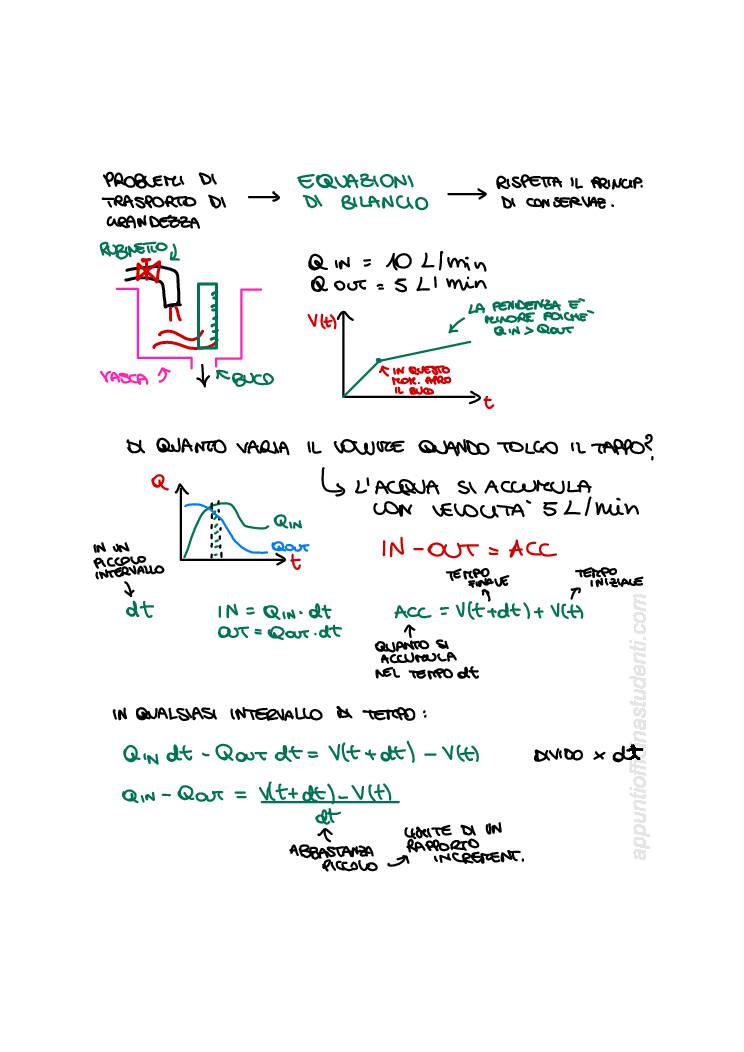 PROBLEMI DI
TRASPORTO DI
GRANDEZZA
EQUAZIONI
DI BILANCIO
RISPETTA IL PRINCIP.
DI CONSERVAZ.
RUBINETTO
VASCA
BUCO
Q IN = 10 L/min
Q OUT = 5 L/min
V(t)
LA PENDENZA E'
MINORE POICHE'
QIN > QOUT
IN QUESTO
MOM. APRO
IL BUCO
t
DI QUANTO VARIA IL VOLUME QUANDO TOLGO IL TAPPO?
L'ACQUA SI ACCUMULA
CON VELOCITA' 5 L/min
Q
QIN
QOUT
t
IN UN
PICCOLO
INTERVALLO
dt
IN - OUT = ACC
IN = QIN · dt
OUT = QOUT · dt
TEMPO
FINALE
TEMPO
INIZIALE
ACC = V(t+dt) + V(t)
QUANTO SI
ACCUMULA
NEL TEMPO dt
IN QUALSIASI INTERVALLO DI TEMPO:
QIN dt - QOUT dt = V(t + dt) - V(t)
DIVIDO x dt
QIN - QOUT = V(t+dt) - V(t)
dt
ABBASTANZA
PICCOLO
LIMITE DI UN
RAPPORTO
INCREMENT.
appuntiofficinastudenti.com